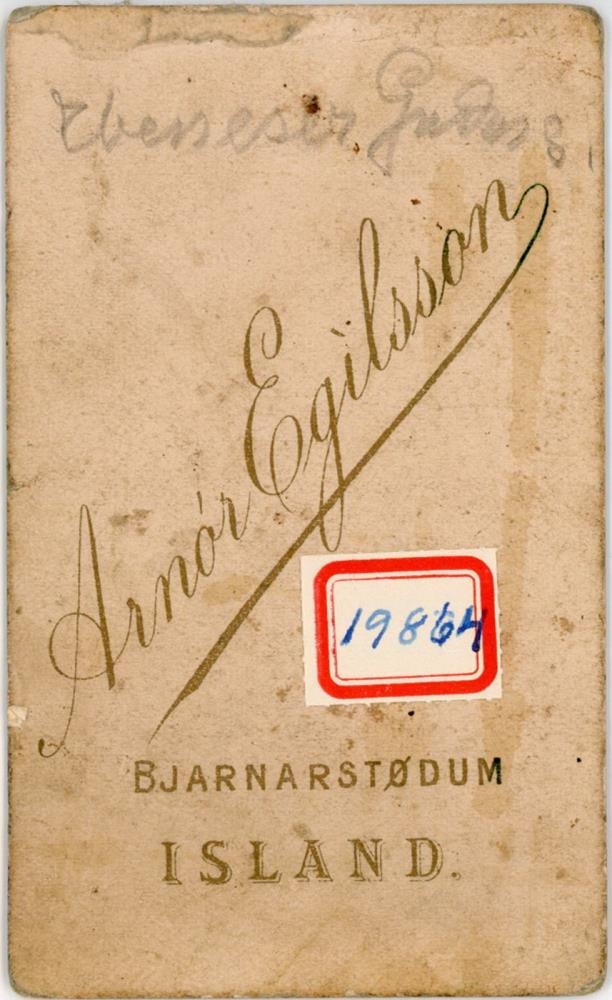 Ebeneser
Arnór Egilsson
19864
BJARNARSTØDUM
ISLAND.